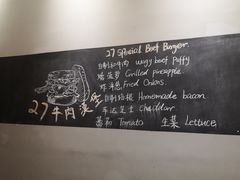 27 Special Beef Burger.
自制和牛肉 wagy beef Patty
烤菠萝 Grilled pineapple.
炸洋葱 Fried Onions.
自制培根 Homemade bacon.
车达芝士 Cheddar.
蕃茄 Tomato 生菜 Lettuce.
27牛肉汉堡